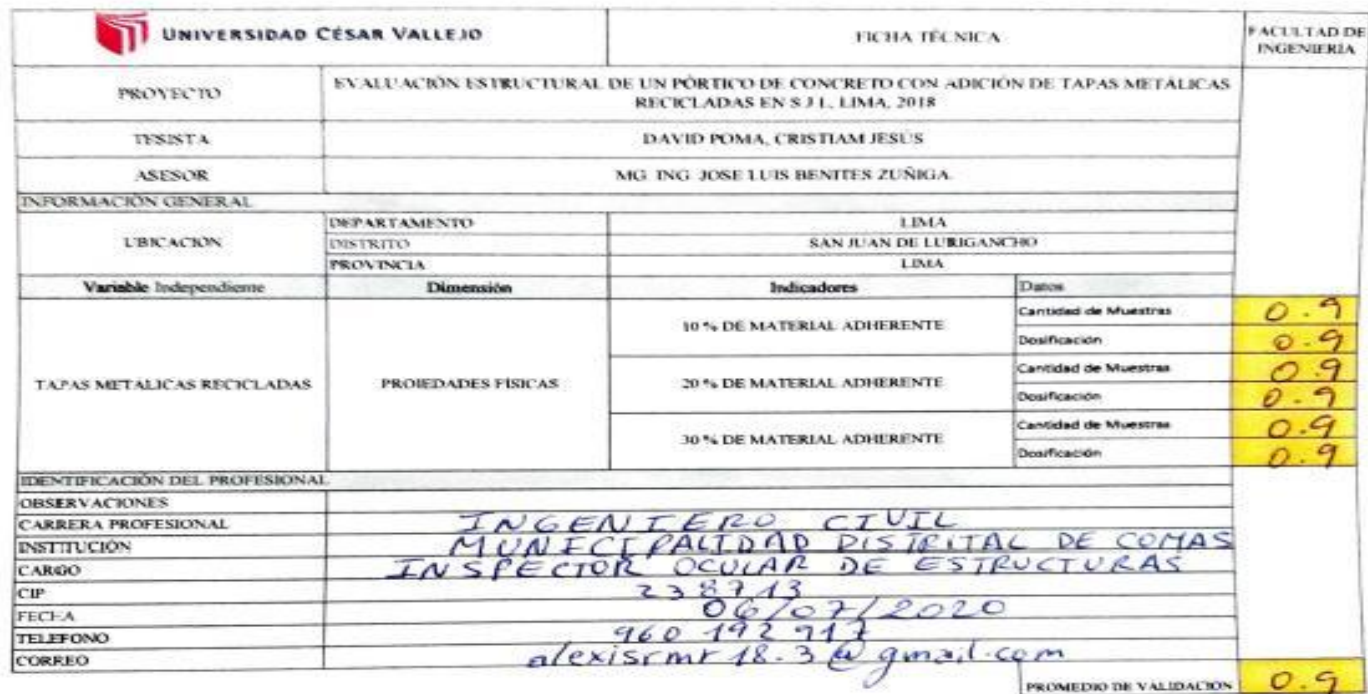 UNIVERSIDAD CÉSAR VALLEJO
FICHA TÉCNICA
FACULTAD DE INGENIERÍA
PROYECTO
EVALUACIÓN ESTRUCTURAL DE UN PÓRTICO DE CONCRETO CON ADICIÓN DE TAPAS METÁLICAS
RECICLADAS EN S J L, LIMA, 2018
TESISTA
DAVID POMA, CRISTIAM JESÚS
ASESOR
MG. ING. JOSE LUIS BENITES ZUÑIGA.
INFORMACIÓN GENERAL
UBICACIÓN
DEPARTAMENTO LIMA
DISTRITO SAN JUAN DE LURIGANCHO
PROVINCIA LIMA
Variable Independiente Dimensión Indicadores Datos
TAPAS METÁLICAS RECICLADAS
PROIEDADES FÍSICAS
10 % DE MATERIAL ADHERENTE
Cantidad de Muestras 0.9
Dosificación 0.9
20 % DE MATERIAL ADHERENTE
Cantidad de Muestras 0.9
Dosificación 0.9
30 % DE MATERIAL ADHERENTE
Cantidad de Muestras 0.9
Dosificación 0.9
IDENTIFICACIÓN DEL PROFESIONAL
OBSERVACIONES
CARRERA PROFESIONAL INGENIERO CIVIL
INSTITUCIÓN MUNICIPALIDAD DISTRITAL DE COMAS
CARGO INSPECTOR OCULAR DE ESTRUCTURAS
CIP 238713
FECHA 06/07/2020
TELEFONO 960 192 917
CORREO alexisrmr18.3@gmail.com
PROMEDIO DE VALIDACION 0.9